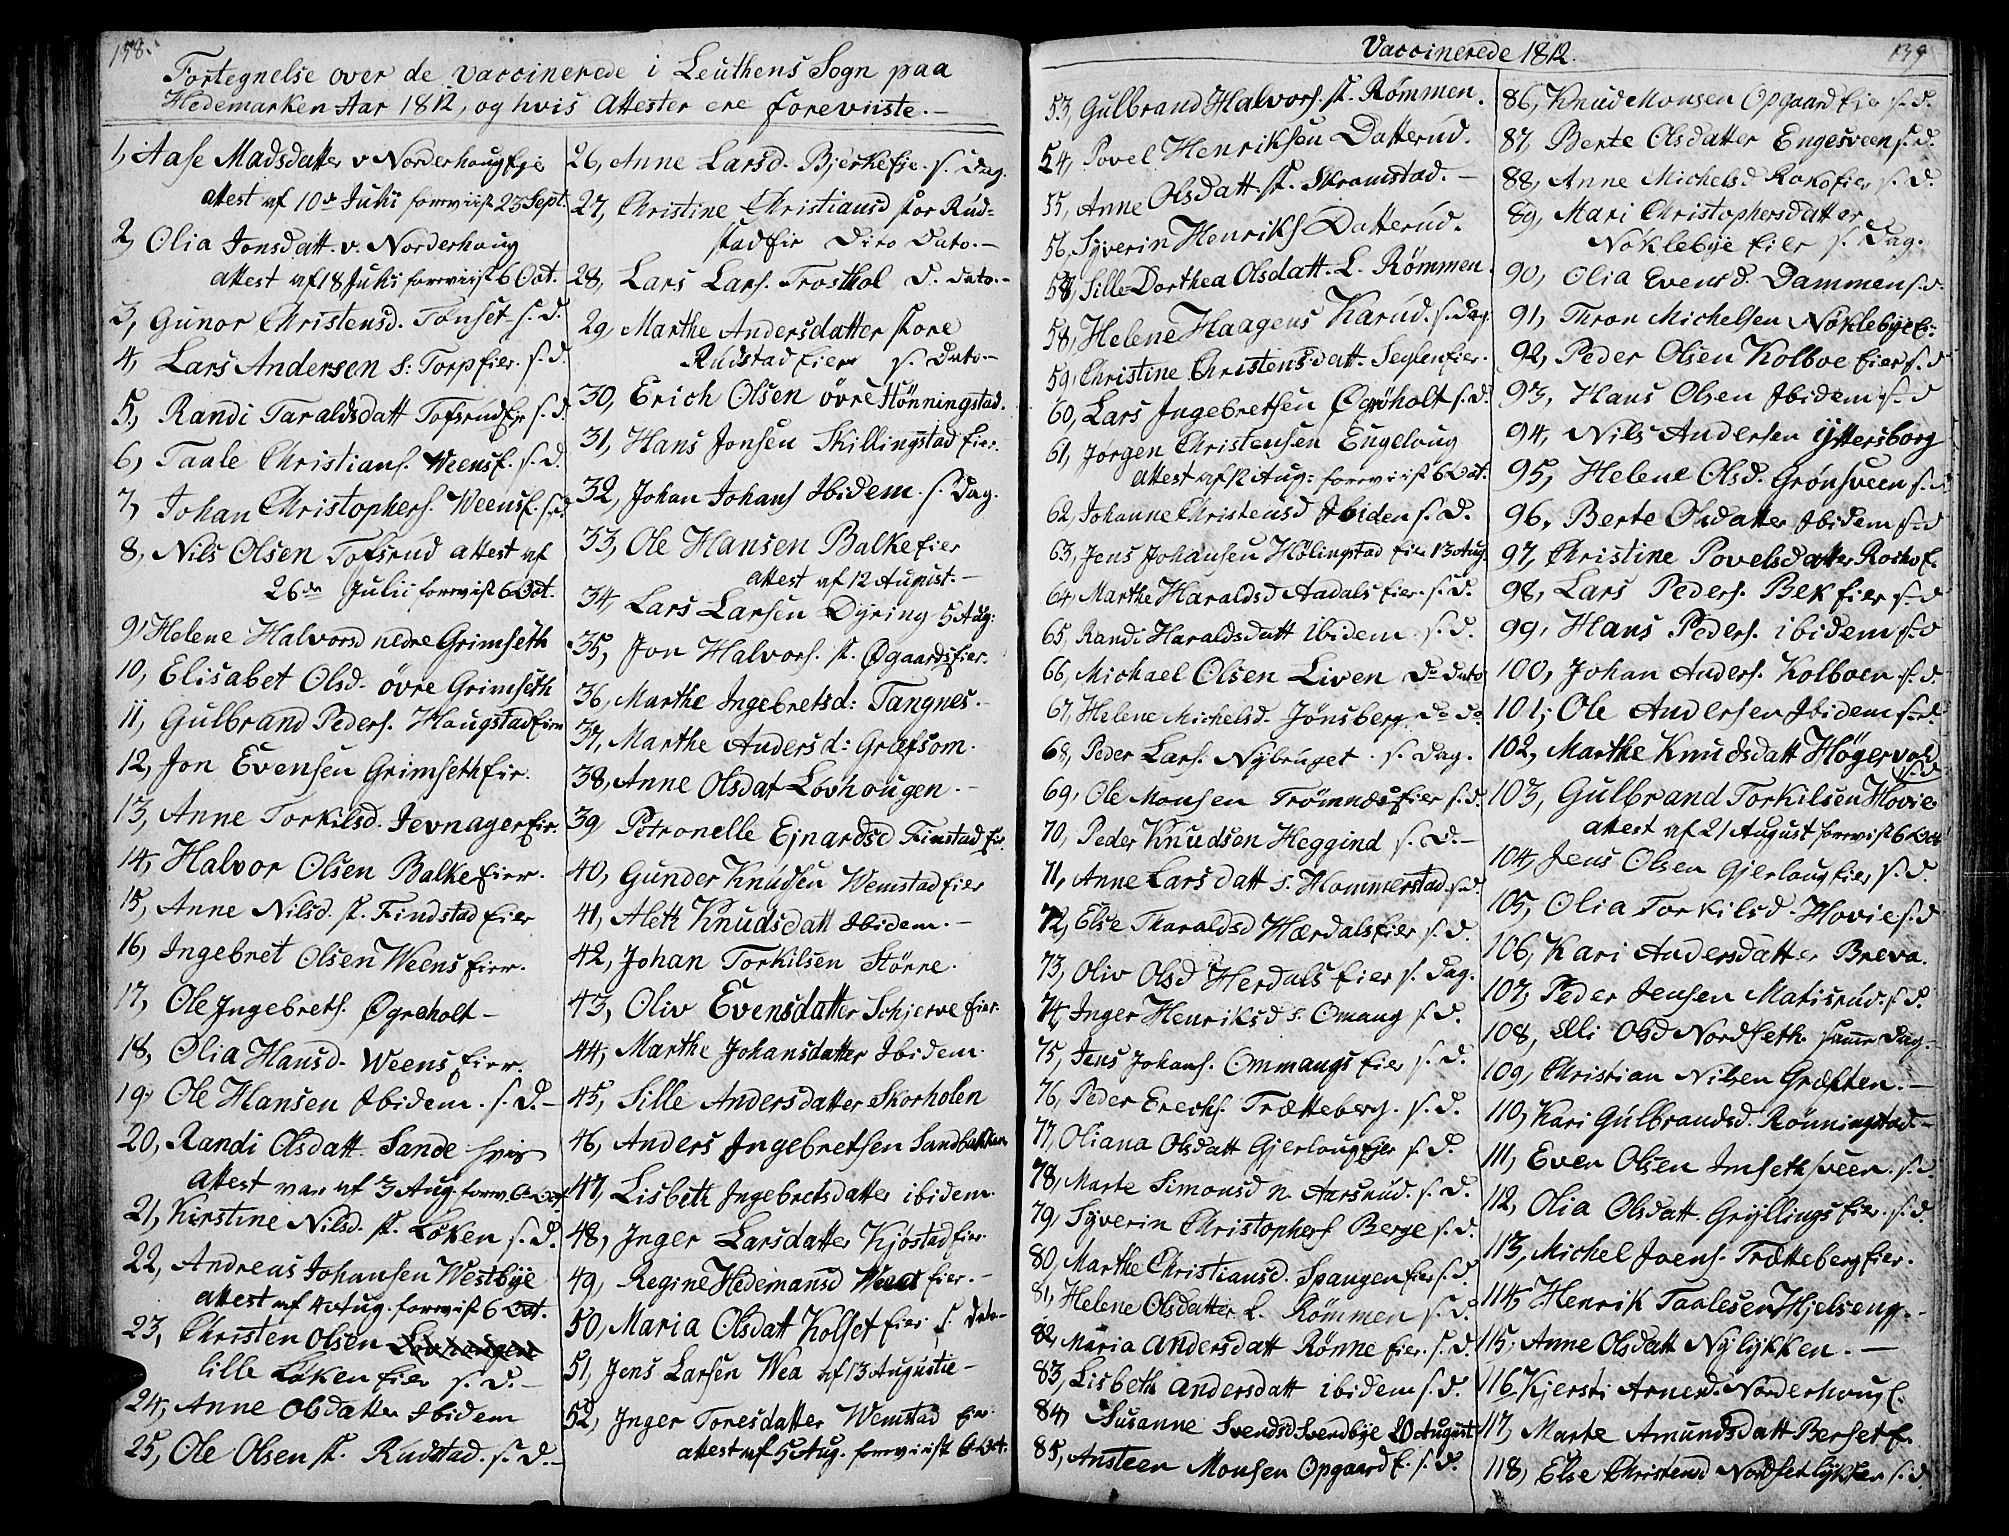 158.
Fortegnelse over de vaccinerede i Leuthens Sogn paa
Hedemarken Aar 1812, og hvis Attester ere foreviiste.-
1, Aase Madsdatter v Norderhougeje
attest af 10de Julii foreviist 23 Sept.
2, Olia Jonsdatt. v. Norderhoug
attest af 18 Julii foreviist 6 Oct.
3, Gunor Christensd. Tönset s. d.
4, Lars Andersen s: Torpeier. s. d.
5, Randi Taraldsdatt Tofsrudejr s. d.
6, Taale Christians. Weense. s. d.
7, Johan Christophers. Weense. s. d.
8, Nils Olsen Tofsrud attest af
26de Julii foreviist 6 Oct.
9, Helene Halvorsd nedre Grimseth
10, Elisabet Olsd. övre Grimseth
11, Gulbrand Peders. Haugstadeier
12, Jon Evensen Grimsetheir.
13, Anne Torkilsd. Jevnagereir.
14, Halvor Olsen Balkeeier.
15, Anne Nilsd. st. Findstadeier
16, Ingebret Olsen Weenseier.
17, Ole Ingebreths. Øgreholt-
18, Olia Hansd. Weenseier.
19, Ole Hansen Ibidem. s. D.-
20, Randi Olsdatt. Sande hvis
Attest var af 3 Aug. forev. 6 Oct
21, Kirstine Nilsd. st. Löken s. D.
22, Andreas Johansen Westbye
attest af 4 Aug. foreviist 6 Oct.
23, Christen Olsen
lille Lökeneier s. D.-
24, Anne Olsdatter Ibidem
25, Ole Olsen st. Rudstad. s. D.-
26, Anne Larsd. Bjerkeeie. s. Dag.
27, Christine Christiansd stor Rud=
stadeir Dito Dato.-
28, Lars Lars. Trosthol D. dato.-
29, Marthe Andersdatter store
Rudstadeier s. Dato-
30, Erich Olsen övre Hönningstad.
31, Hans Jonsen Skillingstadeier.
32, Johan Johans Ibidem. s. Dag.
33, Ole Hansen Balkeeier
attest af 12 August.-
34, Lars Larsen Dyring 5 Aug:
35, Jon Halvors. st. Øgaardseier.
36, Marthe Ingebretsd: Tangnes.-
37, Marthe Andersd: Græfsom.
38, Anne Olsdat Lovhougen.-
39 Petronelle Ejnardsd Finstadeir.
40, Gunder Knudsen Wemstadeier
41, Aleth Knudsdatt Ibidem.-
42, Johan Torkilsen Större.
43, Oliv Evensdatter Schjerveeier.
44, Marthe Johansdatter Ibidem.
45, Sille Andersdatter Skorholen
46, Anders Ingebrethsen Sandbakken
47, Lisbeth Ingebretsdatter ibidem.
48, Inger Larsdatter Kjöstadeier.
49, Regine Hedemansd eier.-
50, Maria Olsdatt Kolseteier s. dato-
51, Jens Larsen Wea af 13 Augustie-
52, Inger Toresdatter Wemstad Eier
attest af 5 Aug. foreviist 6 Oct.
Vaccinerede 1812.
139
53, Gulbrand Halvors. st. Römmen.
54, Povel Henriksen Datterud.
55, Anne Olsdatt. st. Skramstad.-
56, Syverin Henriks Datterud.
58, Sille Dorthea Olsdatt. L. Römmen.
58, Helene Haagens Karud. s. Dag
59, Christine Christensdatt. Segleneier.
60, Lars Ingebrethsen Øgröholt s. d.
61, Jörgen Christensen Engeloug
attest af 12 Aug: foreviist 6 Oct.
62, Johanne Christensd Ibiden s. D.
63, Jens Johansen Hölingstad Eier 13 Aug
64, Marthe Haraldsd Aadalseier. s. D.
65, Randi Haraldsdatt ibidem. s. D.
66, Michael Olsen Liven Do Dato
67, Helene Michelsd. Jönsberg Do Do
68, Peder Lars. Nybruget. s. Dag.
69, Ole Monsen Trömnæseier s. d.
70, Peder Knudsen Heggind s. D.-
71, Anne Larsdatt s. Hommerstad. s. d.
72, Else Tharaldsd Hærdalseier s. d.
73, Oliv Olsd Herdals Eier s. Dag.
74, Inger Henriksd s. Omang s. d.
75, Jens Johans. Ommangseier s. D.
76, Peder Erechs. Trætteberg. s. D.
77, Oliana Olsdatt Gjerlougejer s. D.
78, Marte Simonsd n. Aarsrud. s. D.
79, Syverin Christophers Berge s. d.
80, Marthe Christiansd. Spangeneier s. d.
81, Helene Olsdatter L. Römmen s. d.
82, Maria Andersdatt Rönne Eier. s. d.
83, Lisbeth Andersdatt ibidem s. d.
84, Susanne Svendsd Svenbye 20 August
85, Ansteen Monsen Opgaard E. s. D.
86, Knud Monsen Opgaardeier s. d.
87, Berte Olsdatter Engesveen s. D.
88, Anne Michelsd Rokoeier s. D.
89, Mari Christophersdatter
Nöklebye Eier s. Dag.
90, Olia Evensd. Dammen s. d.
91, Thron Michelsen Nöklebye E:
92, Peder Olsen Kolboe Eier s. d
93, Hans Olsen Ibidem s. d
94, Nils Andersen Yttersborg
95, Helene Olsd. Grönsveen s. d
96, Berte Olsdatter Ibidem s. d
97, Christine Povelsdatter Rochoe.
98, Lars Peders. Bekeier s. d
99, Hans Peders. ibidem s. d
100, Johan Anders. Kolboen s. d.
101, Ole Andersen Ibidem s. d
102, Marthe Knudsdatt Högervold
s. d
103, Gulbrand Torkilsen Hovie
attest af 21 August foreviist 6 Oct
104, Jens Olsen Gjerlougeier s. D.
105, Olia Torkilsd. Hovie s. d
106, Kari Andersdatter Breva.
107, Peder Jensen Matisrud. s. d.
108, Elli Olsd Nordseth. samme Dag.-
109, Christian Nilsen Græften.-
110, Kari Gulbrandsd. Rönningstad-
111, Even Olsen Imsethsveen. s. d
112, Olia Olsdatt. Gryllingseier. s. d.
113, Michel Joens. Trættebergeier.
114, Henrik Taalesen Hjelseng.-
115, Anne Olsdatt Nylykken.-
116, Kjersti Arnesd. Norderhoug E.
117, Marte Amundsdatt Berset E.
118, Else Christensd Nordsetlykken s. d.